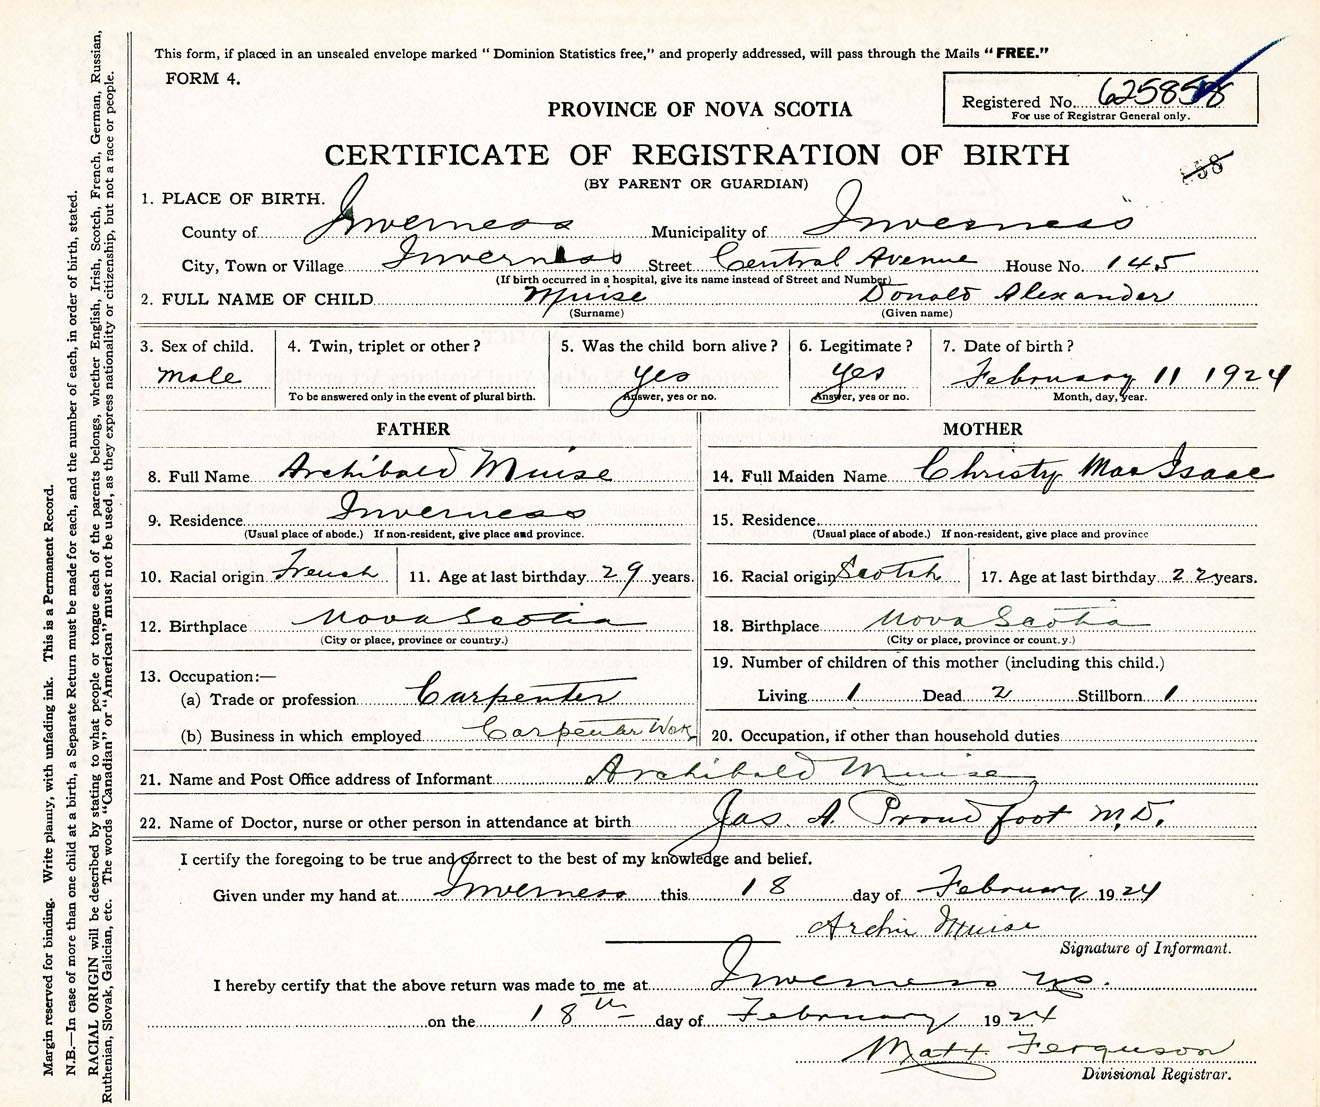 This form, if placed in an unsealed envelope marked " Dominion Statistics free," and properly addressed, will pass through the Mails "FREE."
FORM 4.
Registered No. 625858
For use of Registrar General only.
PROVINCE OF NOVA SCOTIA
CERTIFICATE OF REGISTRATION OF BIRTH
(BY PARENT OR GUARDIAN)
1. PLACE OF BIRTH.
County of Inverness Municipality of Inverness
City, Town or Village Inverness Street Central Avenue House No. 145
(If birth occurred in a hospital, give its name instead of Street and Number)
2. FULL NAME OF CHILD Muise Donald Alexander
(Surname) (Given name)
3. Sex of child. 4. Twin, triplet or other? 5. Was the child born alive? 6. Legitimate? 7. Date of birth?
male yes yes February 11 1924
To be answered only in the event of plural birth. Answer, yes or no. Answer, yes or no. Month, day, year.
FATHER MOTHER
8. Full Name Archibald Muise 14. Full Maiden Name Christy MacIsaac
9. Residence Inverness 15. Residence
(Usual place of abode.) If non-resident, give place and province. (Usual place of abode.) If non-resident, give place and province
10. Racial origin French 11. Age at last birthday 29 years. 16. Racial origin Scotch 17. Age at last birthday 22 years.
12. Birthplace Nova Scotia 18. Birthplace Nova Scotia
(City or place, province or country.) (City or place, province or count.y.)
13. Occupation:— 19. Number of children of this mother (including this child.)
(a) Trade or profession Carpenter Living 1 Dead 2 Stillborn 1
(b) Business in which employed Carpenter Work 20. Occupation, if other than household duties
21. Name and Post Office address of Informant Archibald Muise
22. Name of Doctor, nurse or other person in attendance at birth Jas. A. Proudfoot M.D.
I certify the foregoing to be true and correct to the best of my knowledge and belief.
Given under my hand at Inverness this 18 day of February 1924
Archie Muise
Signature of Informant.
I hereby certify that the above return was made to me at Inverness NS.
on the 18th day of February 1924
Matt Ferguson
Divisional Registrar.
Margin reserved for binding. Write plainly, with unfading ink. This is a Permanent Record.
N.B.—In case of more than one child at a birth, a Separate Return must be made for each, and the number of each, in order of birth, stated.
RACIAL ORIGIN will be described by stating to what people or tongue each of the parents belongs, whether English, Irish, Scotch, French, German, Russian,
Ruthenian, Slovak, Galician, etc. The words "Canadian" or "American" must not be used, as they express nationality or citizenship, but not a race or people.